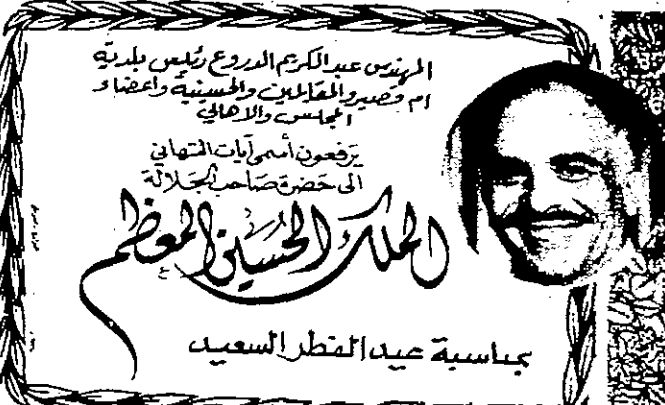 المهندس عبدالكريم الدروع رئيس بلدية
ام قصير والمقابلين والحسينية واعضاء
المجلس والاهالي
يرفعون أسمى آيات التهاني
الى حضرة صاحب الجلالة
الملك الحسين المعظم
بمناسبة عيد الفطر السعيد